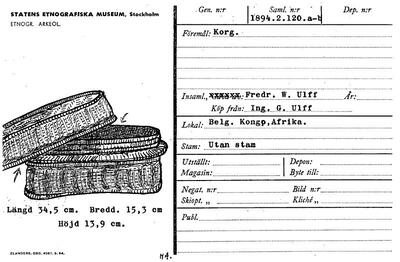 STATENS ETNOGRAFISKA MUSEUM, Stockholm
ETNOGR. ARKEOL.
Längd 34,5 cm. Bredd. 15,3 cm
Höjd 13,9 cm.
Gen. n:r Saml. n:r Dep. n:r
1894.2.120.a-b
Föremål: Korg.
Insaml., Fredr. W. Ulff År:
Köp från: Ing. G. Ulff
Lokal: Belg. Kongp,Afrika.
Stam: Utan stam
Utställt: Depon:
Magasin: Byte till:
Negat. n:r Bild n:r
Skiopt. „ Kliché „
Publ.